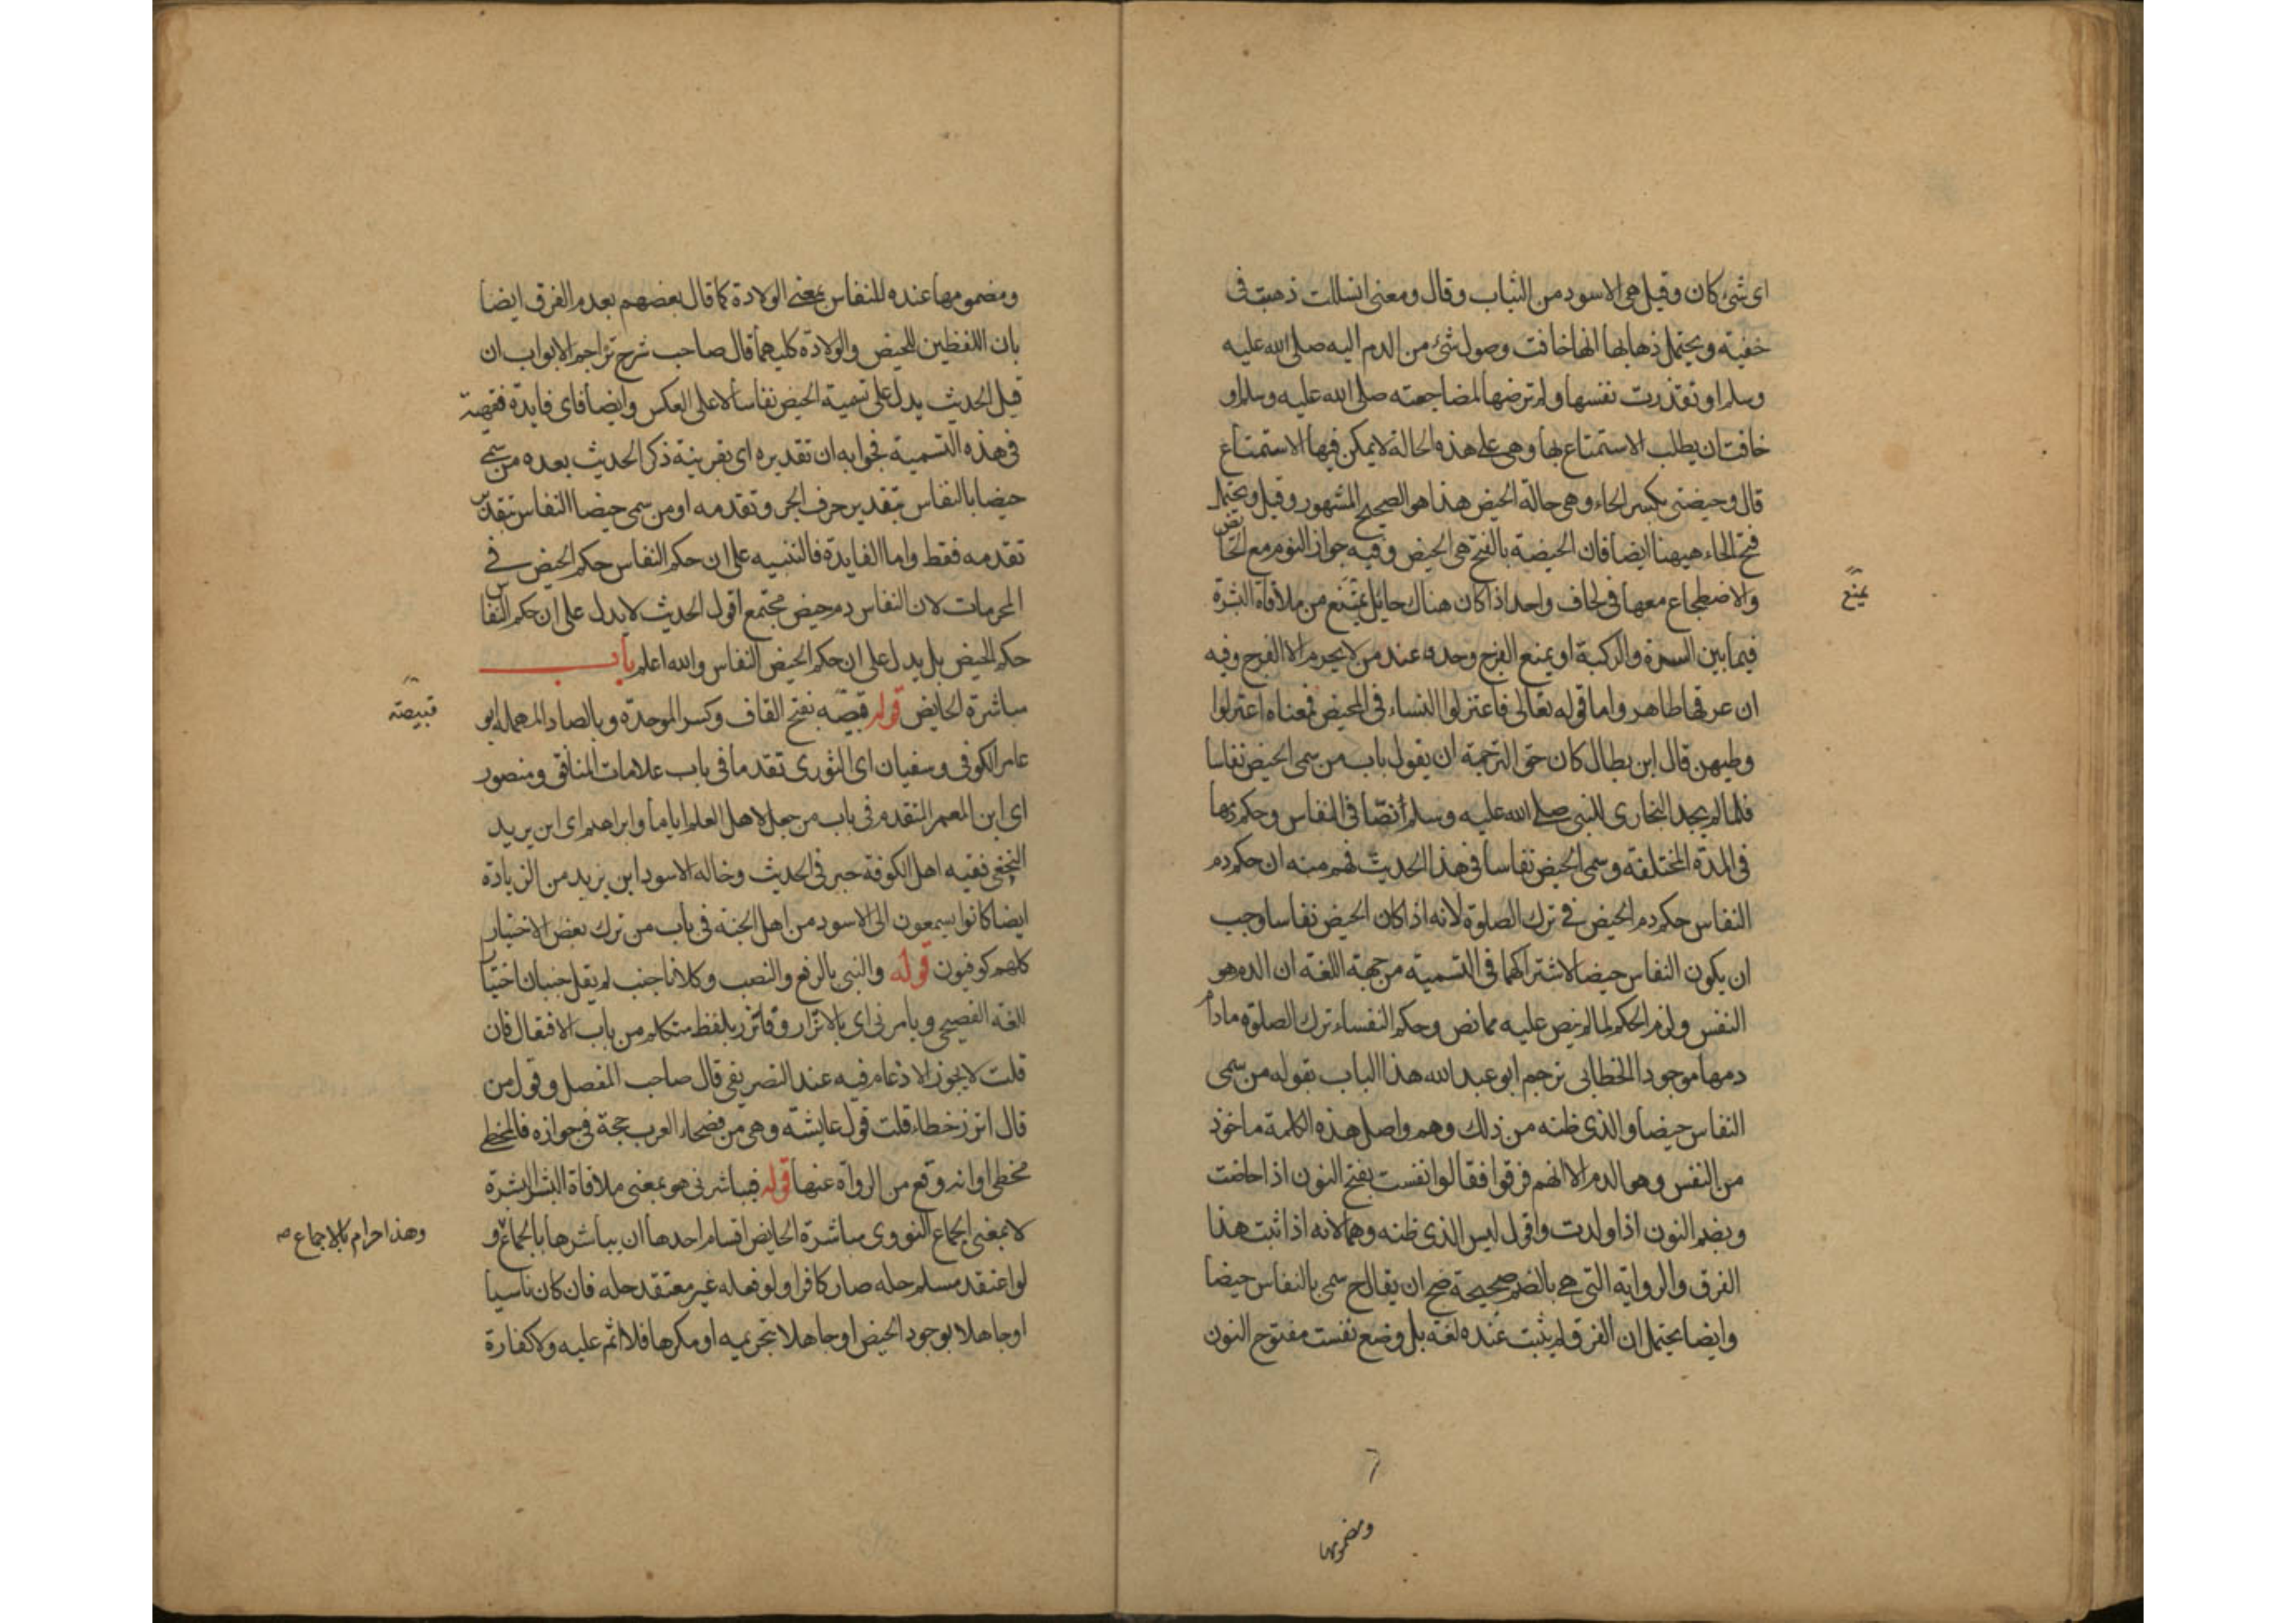 اى شئ كان وقيل هى الاسود من الثياب وقال ومعنى انسللت ذهبت فى
خفية ويحتمل ذهابها انها خافت وصول شئ من الدم اليه صلى الله عليه
وسلم او تقذرت نفسها ولم ترضها لمضاجعته صلى الله عليه وسلم او
خافت ان يطلب الاستمتاع بها وهى على هذه الحالة لا يمكن فيها الاستمتاع
قال وحيضتى بكسر الحاء وهى حالة الحيض هذا هو الصحيح المشهور وقيل ويحتمل
فتح الحاء هيهنا ايضا فان الحيضة بالفتح هى الحيض وفيه جواز النوم مع الحائض
والاضطجاع معها فى لحاف واحد اذا كان هناك حائل يمنع من ملاقاة البشرة
يمنع
فيما بين السرة والركبة او يمنع الفرج وحده عند من لا يحرم الا الفرج وفيه
ان عرقها طاهر واما قوله تعالى فاعتزلوا النساء فى المحيض فمعناه اعتزلوا
وطيهن قال ابن بطال كان حق الترجمة ان يقول باب من سمى الحيض نفاسا
فلما لم يجد البخارى للنبى صلى الله عليه وسلم نصا فى النفاس وحكم دمها
فى المدة المختلفة وسمى الحيض نفاسا فى هذا الحديث فهم منه ان حكم دم
النفاس حكم دم الحيض فى ترك الصلوة لانه اذا كان الحيض نفاسا وجب
ان يكون النفاس حيضا لاشتراكهما فى التسمية من جهة اللغة ان الدم هو
النفس ولزم الحكم لما لم ينص عليه مما نص وحكم النفساء ترك الصلوة مادام
دمها موجودا الخطابى ترجم ابو عبد الله هذا الباب بقوله من سمى
النفاس حيضا والذى ظنه من ذلك وهم واصل هذه الكلمة ماخوذ
من النفس وهو الدم الا انهم فرقوا فقالوا نفست بفتح النون اذا حاضت
وبضم النون اذا ولدت واقول ليس الذى ظنه وهما لانه اذا ثبت هذا
الفرق والرواية التى هى بالضم صحيحة صح ان يقال ح سمى بالنفاس حيضا
وايضا يحتمل ان الفرق لم يثبت عنده لغة بل وضع نفست مفتوح النون
ومضمومها
ومضمومها عنده للنفاس بمعنى الولادة كما قال بعضهم بعدم الفرق ايضا
بان اللفظين للحيض والولادة كليهما قال صاحب شرح تراجم الابواب ان
قيل الحديث يدل على تسمية الحيض نفاسا لا على العكس وايضا فاى فايدة فقهية
فى هذه التسمية فجوابه ان تقديره اى بقرينة ذكر الحديث بعده من سمى
حيضا بالنفاس بتقدير حرف الجر وتقدمه او من سمى حيضا النفاس بتقدير
تقدمه فقط واما الفايدة فالتنبيه على ان حكم النفاس حكم الحيض فى
المحرمات لان النفاس دم حيض مجتمع اقول الحديث لا يدل على ان حكم النفاس
حكم الحيض بل يدل على ان حكم الحيض النفاس والله اعلم باب
مباشرة الحايض قوله قبيصه بفتح القاف وكسر الموحدة وبالصاد المهملة ابو
قبيصة
عامر الكوفى وسفيان اى الثورى تقدما فى باب علامات المنافق ومنصور
اى ابن المعمر المتقدم فى باب من جعل لاهل العلم اياما وابراهيم اى ابن يريد
النخعى فقيه اهل الكوفة حبر فى الحديث وخاله الاسود ابن يزيد من الزيادة
ايضا كانوا يسمعون الى الاسود من اهل الجنة فى باب من ترك بعض الاختيار
كلهم كوفيون قوله والنبى بالرفع والنصب وكلانا جنب لم يقل جنبان اختيار
اللغة الفصيحى ويامرنى اى بالاتزار وفاتزر بلفظ متكلم من باب الافتعال فان
قلت لا يجوز الادغام فيه عند التصريفى قال صاحب المفصل وقول من
قال اتزر خطاء قلت قول عايشة وهى من فصحاء العرب حجة فى جوازه فالمخطى
مخطى او انه وقع من الرواة عنها قوله فيباشرنى هو بمعنى ملاقاة البشر البشرة
لا بمعنى الجماع النووى مباشرة الحايض اقسام احدها ان يباشرها بالجماع و
وهذا حرام بالاجماع صح
لو اعتقد مسلم حله صار كافرا ولو فعله غير معتقد حله فان كان ناسيا
او جاهلا بوجود الحيض او جاهلا بتحريمه او مكرها فلا اثم عليه ولا كفارة